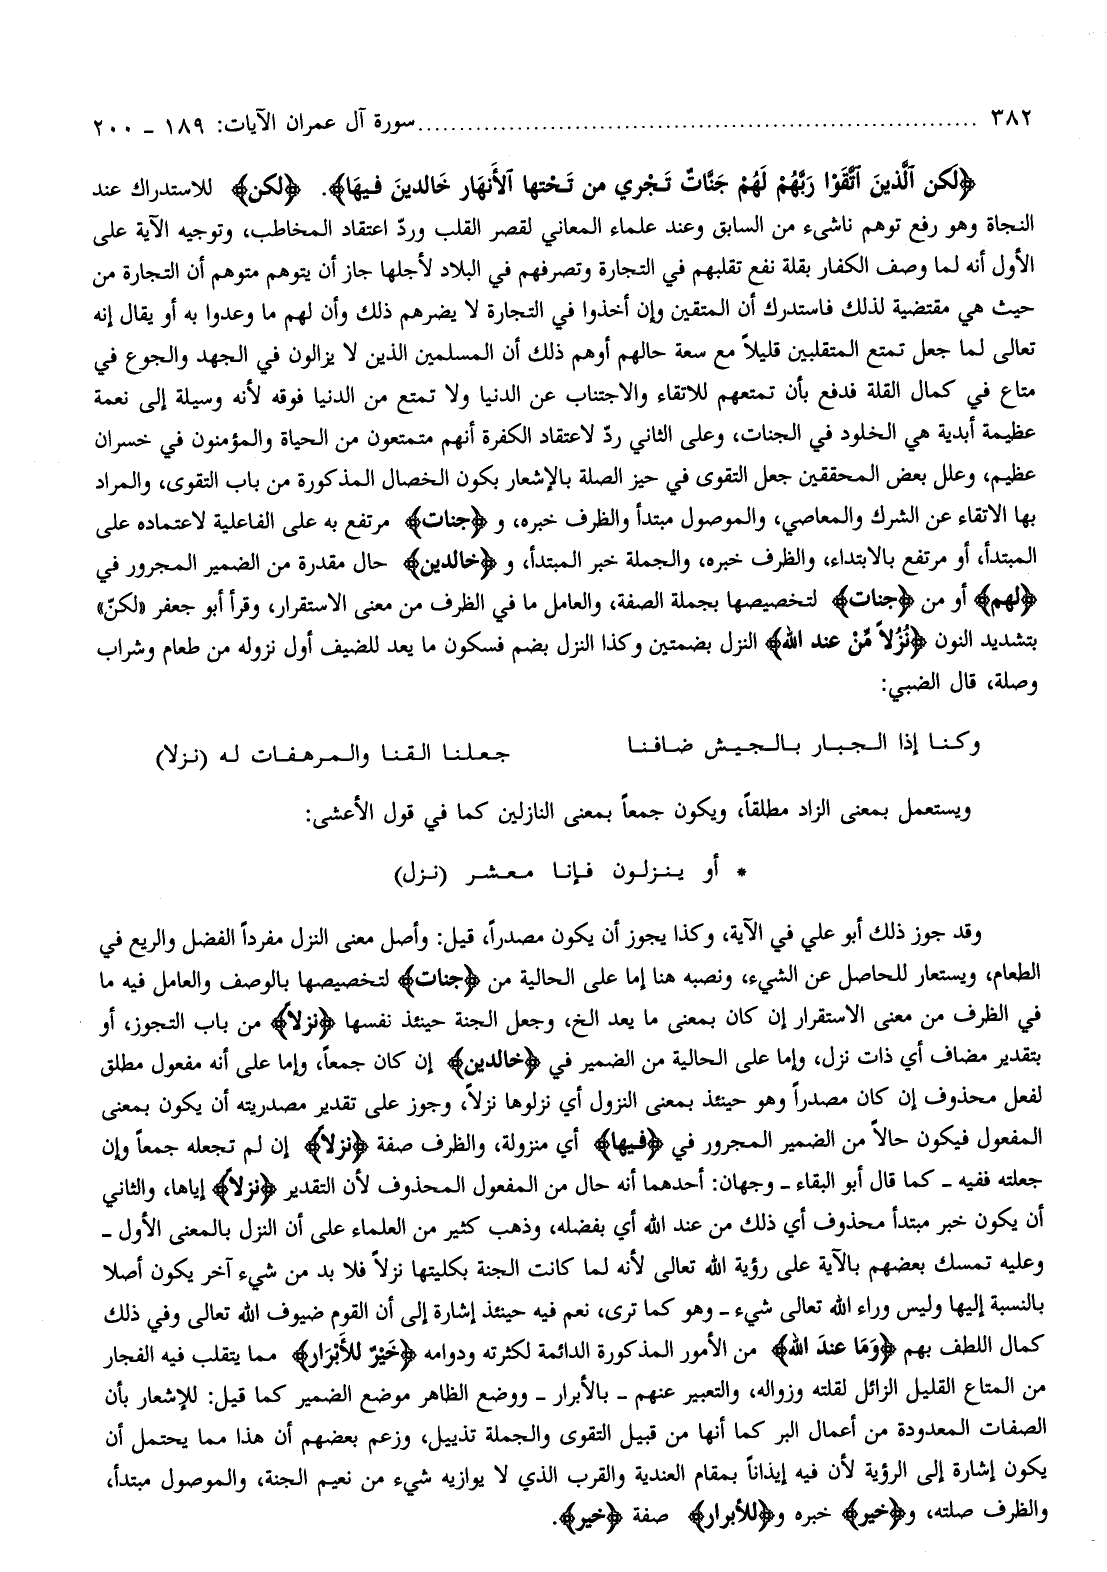 ٣٨٢ ........................................................................ سورة آل عمران الآيات: ١٨٩ ـ ٢٠٠
﴿لَكن ٱلَّذينَ ٱتَّقَوْا رَبَّهُمْ لَهُمْ جَنَّاتٌ تَجْري من تَحْتها ٱلأَنهَار خَالدينَ فيهَا﴾. ﴿لكن﴾ للاستدراك عند
النجاة وهو رفع توهم ناشىء من السابق وعند علماء المعاني لقصر القلب وردّ اعتقاد المخاطب، وتوجيه الآية على
الأول أنه لما وصف الكفار بقلة نفع تقلبهم في التجارة وتصرفهم في البلاد لأجلها جاز أن يتوهم متوهم أن التجارة من
حيث هي مقتضية لذلك فاستدرك أن المتقين وإن أخذوا في التجارة لا يضرهم ذلك وأن لهم ما وعدوا به أو يقال إنه
تعالى لما جعل تمتع المتقلبين قليلاً مع سعة حالهم أوهم ذلك أن المسلمين الذين لا يزالون في الجهد والجوع في
متاع في كمال القلة فدفع بأن تمتعهم للاتقاء والاجتناب عن الدنيا ولا تمتع من الدنيا فوقه لأنه وسيلة إلى نعمة
عظيمة أبدية هي الخلود في الجنات، وعلى الثاني ردّ لاعتقاد الكفرة أنهم متمتعون من الحياة والمؤمنون في خسران
عظيم، وعلل بعض المحققين جعل التقوى في حيز الصلة بالإشعار بكون الخصال المذكورة من باب التقوى، والمراد
بها الاتقاء عن الشرك والمعاصي، والموصول مبتدأ والظرف خبره، و ﴿جنات﴾ مرتفع به على الفاعلية لاعتماده على
المبتدأ، أو مرتفع بالابتداء، والظرف خبره، والجملة خبر المبتدأ، و ﴿خالدين﴾ حال مقدرة من الضمير المجرور في
﴿لهم﴾ أو من ﴿جنات﴾ لتخصيصها بجملة الصفة، والعامل ما في الظرف من معنى الاستقرار، وقرأ أبو جعفر «لكنّ»
بتشديد النون ﴿نُزُلاً مّنْ عند الله﴾ النزل بضمتين وكذا النزل بضم فسكون ما يعد للضيف أول نزوله من طعام وشراب
وصلة، قال الضبي:
وكنا إذا الجبار بالجيش ضافنا جعلنا القنا والمرهفات له (نزلا)
ويستعمل بمعنى الزاد مطلقاً، ويكون جمعاً بمعنى النازلين كما في قول الأعشى:
* أو ينزلون فإنا معشر (نزل)
وقد جوز ذلك أبو علي في الآية، وكذا يجوز أن يكون مصدراً، قيل: وأصل معنى النزل مفرداً الفضل والريع في
الطعام، ويستعار للحاصل عن الشيء، ونصبه هنا إما على الحالية من ﴿جنات﴾ لتخصيصها بالوصف والعامل فيه ما
في الظرف من معنى الاستقرار إن كان بمعنى ما يعد الخ، وجعل الجنة حينئذ نفسها ﴿نزلاً﴾ من باب التجوز، أو
بتقدير مضاف أي ذات نزل، وإما على الحالية من الضمير في ﴿خالدين﴾ إن كان جمعاً، وإما على أنه مفعول مطلق
لفعل محذوف إن كان مصدراً وهو حينئذ بمعنى النزول أي نزلوها نزلاً، وجوز على تقدير مصدريته أن يكون بمعنى
المفعول فيكون حالاً من الضمير المجرور في ﴿فيها﴾ أي منزولة، والظرف صفة ﴿نزلاً﴾ إن لم تجعله جمعاً وإن
جعلته ففيه ـ كما قال أبو البقاء ـ وجهان: أحدهما أنه حال من المفعول المحذوف لأن التقدير ﴿نزلاً﴾ إياها، والثاني
أن يكون خبر مبتدأ محذوف أي ذلك من عند الله أي بفضله، وذهب كثير من العلماء على أن النزل بالمعنى الأول ـ
وعليه تمسك بعضهم بالآية على رؤية الله تعالى لأنه لما كانت الجنة بكليتها نزلاً فلا بد من شيء آخر يكون أصلا
بالنسبة إليها وليس وراء الله تعالى شيء ـ وهو كما ترى، نعم فيه حينئذ إشارة إلى أن القوم ضيوف الله تعالى وفي ذلك
كمال اللطف بهم ﴿وَمَا عندَ الله﴾ من الأمور المذكورة الدائمة لكثرته ودوامه ﴿خَيْرٌ للأَبْرَار﴾ مما يتقلب فيه الفجار
من المتاع القليل الزائل لقلته وزواله، والتعبير عنهم ـ بالأبرار ـ ووضع الظاهر موضع الضمير كما قيل: للإشعار بأن
الصفات المعدودة من أعمال البر كما أنها من قبيل التقوى والجملة تذييل، وزعم بعضهم أن هذا مما يحتمل أن
يكون إشارة إلى الرؤية لأن فيه إيذاناً بمقام العندية والقرب الذي لا يوازيه شيء من نعيم الجنة، والموصول مبتدأ،
والظرف صلته، و﴿خير﴾ خبره و﴿للأبرار﴾ صفة ﴿خير﴾.